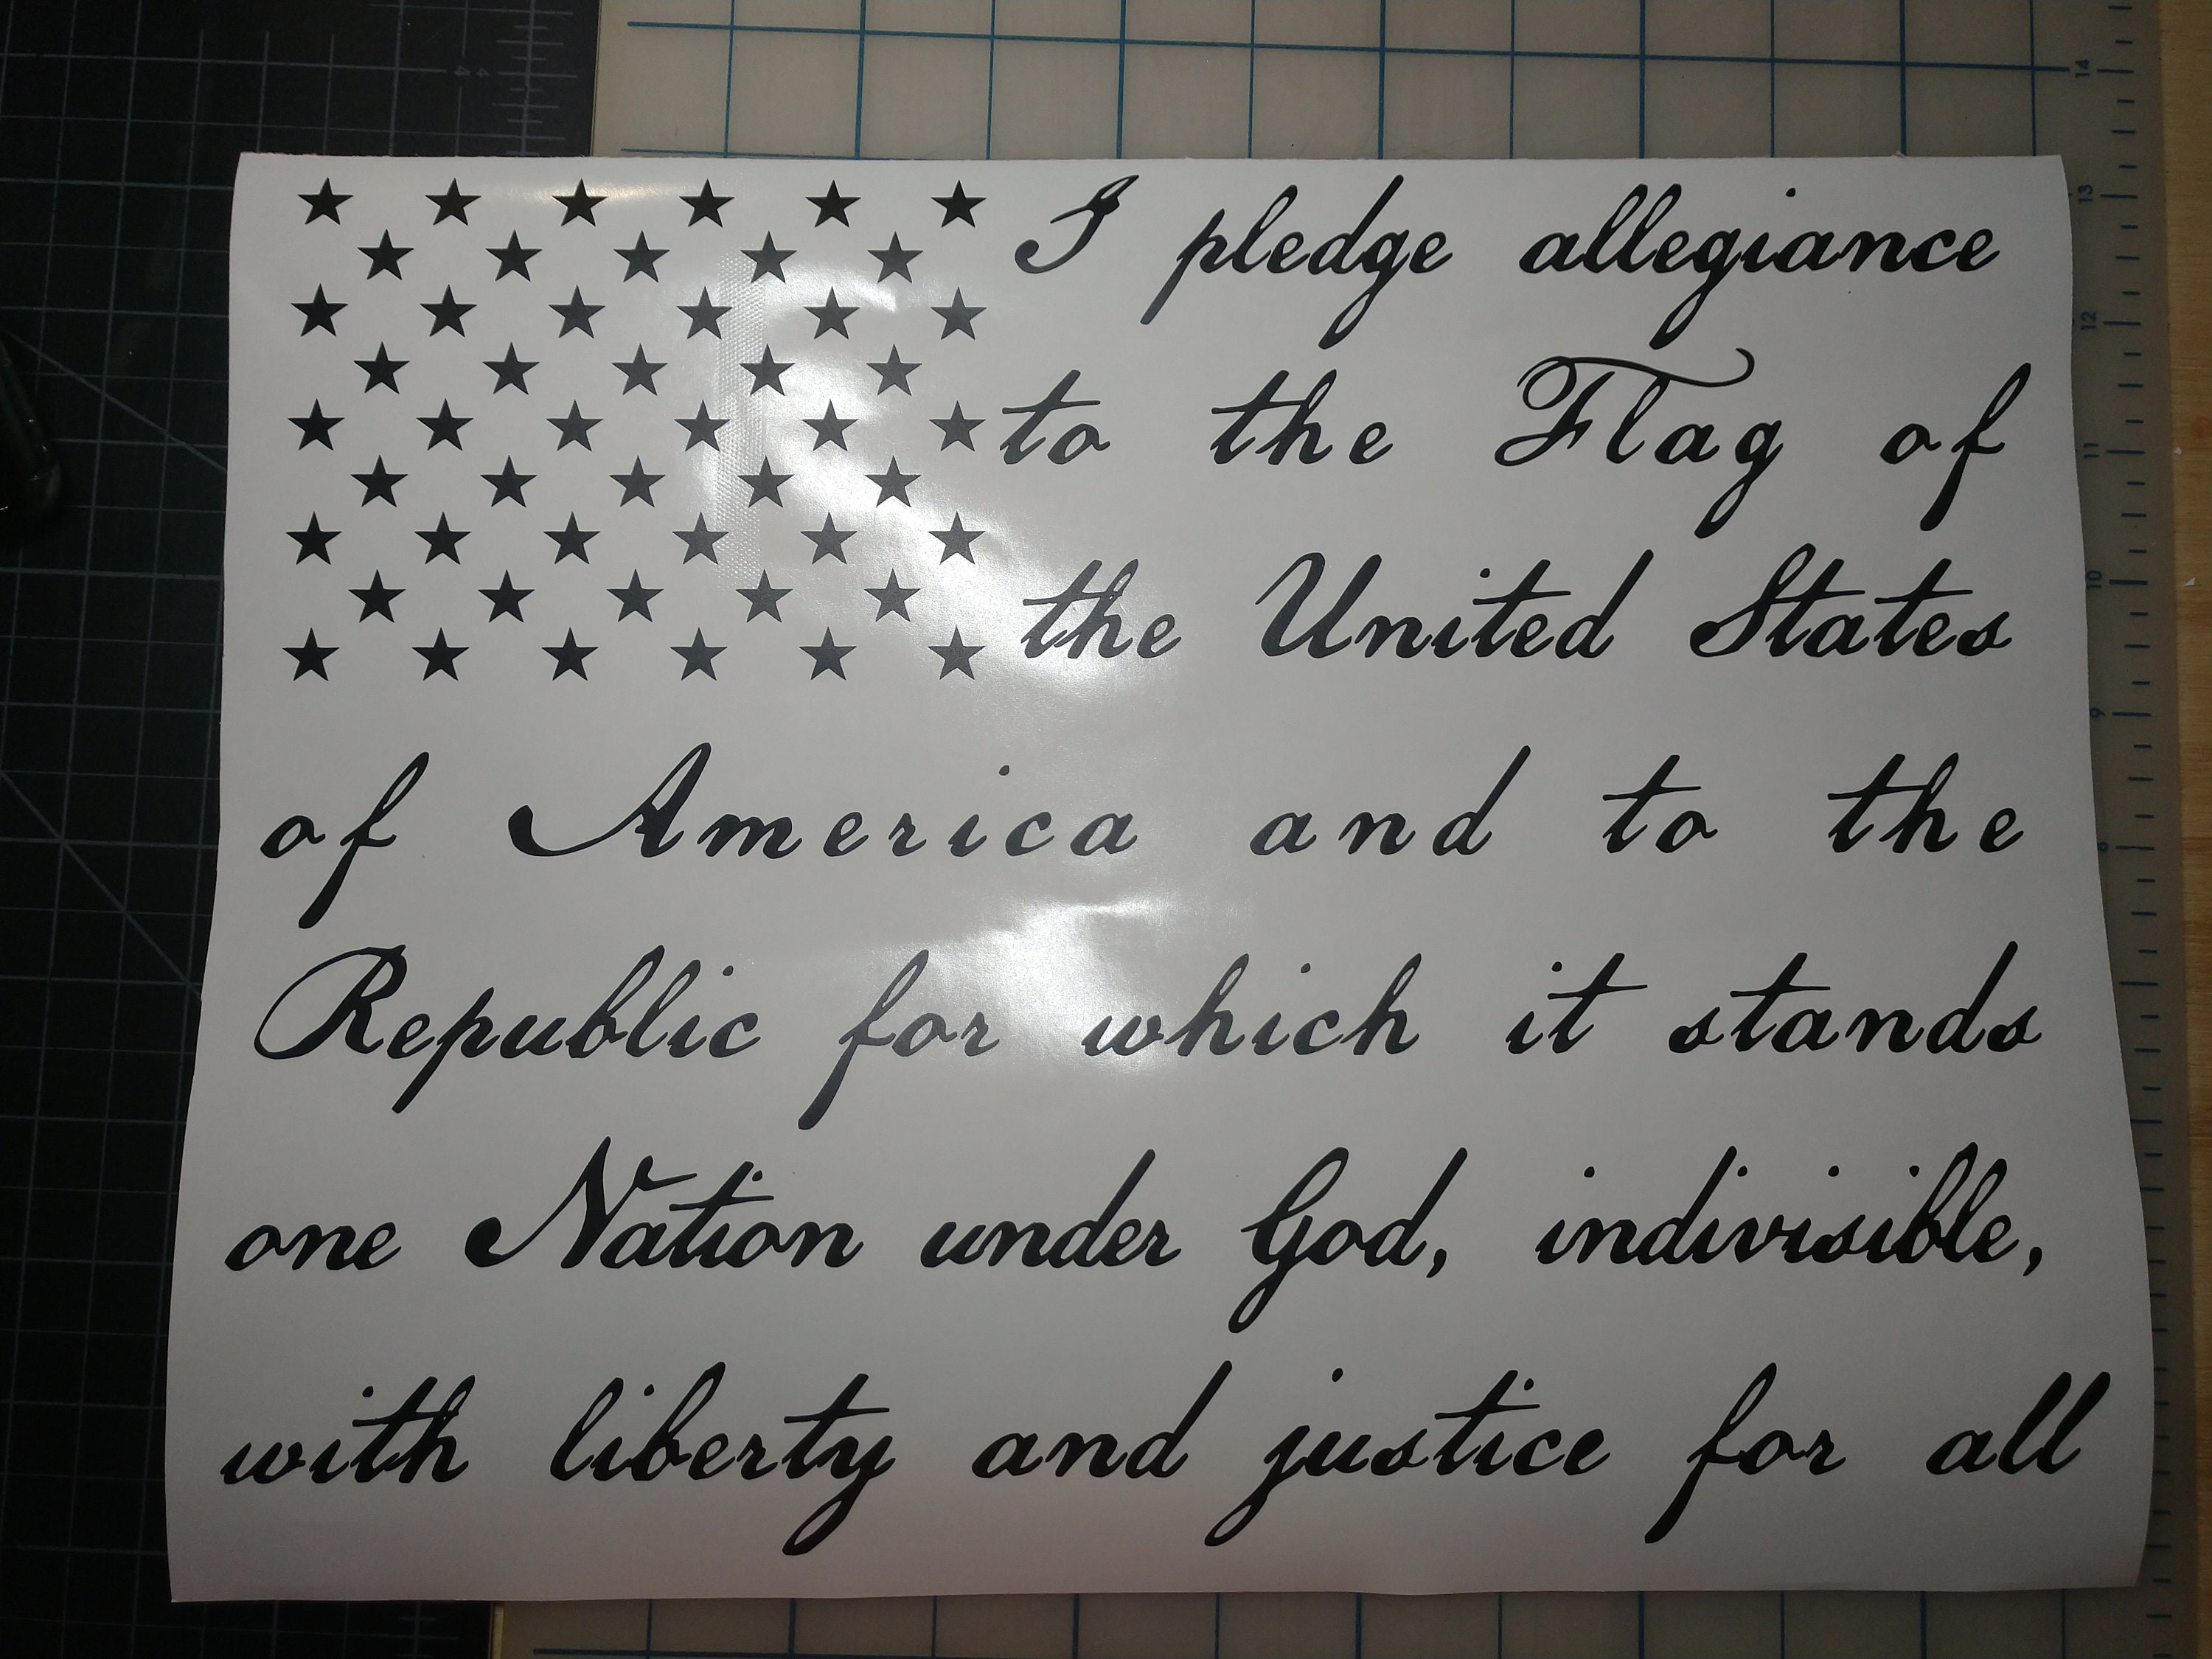 I pledge allegiance
to the Flag of
the United States
of America and to the
Republic for which it stands
one Nation under God, indivisible,
with liberty and justice for all
14
13
12
11
10
9
8